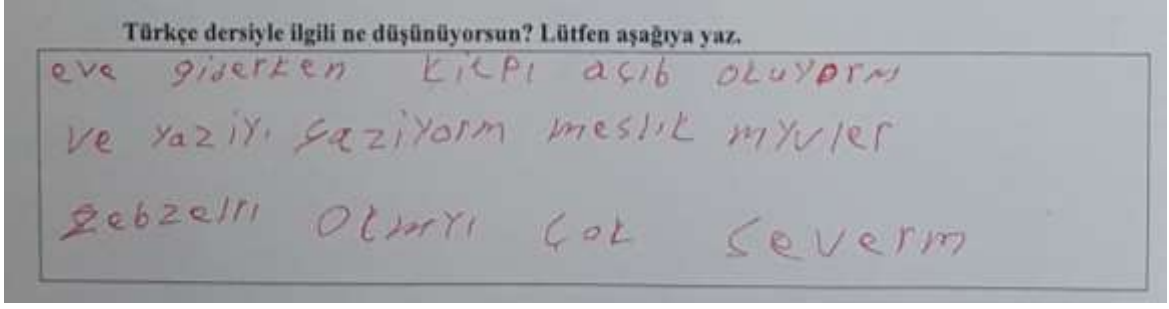 Türkçe dersiyle ilgili ne düşünüyorsun? Lütfen aşağıya yaz.
eve giderken kitpı açıb okuyorm
ve yaziyı çaziyorm meslik myvler
zebzelri okmyı çok severm